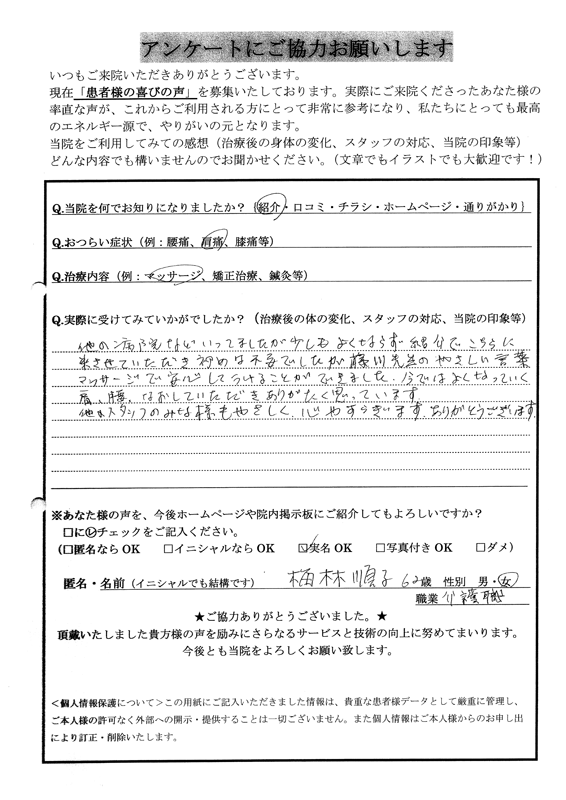 アンケートにご協力お願いします
いつもご来院いただきありがとうございます。
現在「患者様の喜びの声」を募集いたしております。実際にご来院くださったあなた様の
率直な声が、これからご利用される方にとって非常に参考になり、私たちにとっても最高
のエネルギー源で、やりがいの元となります。
当院をご利用してみての感想（治療後の身体の変化、スタッフの対応、当院の印象等）
どんな内容でも構いませんのでお聞かせください。（文章でもイラストでも大歓迎です！）
Q.当院を何でお知りになりましたか？｛紹介・口コミ・チラシ・ホームページ・通りがかり｝
Q.おつらい症状（例：腰痛、肩痛、膝痛等）
Q.治療内容（例：マッサージ、矯正治療、鍼灸等）
Q.実際に受けてみていかがでしたか？（治療後の体の変化、スタッフの対応、当院の印象等）
他の病院などいってましたが少しもよくならず紹介でこちらに
来させていただき初めは不安でしたが藤川先生のやさしい言葉
マッサージで安心してうけることができました。今ではよくなっていく
肩、腰、なおしていただきありがたく思っています
他のスタッフのみな様もやさしく心やすらぎます ありがとうございます
※あなた様の声を、今後ホームページや院内掲示板にご紹介してもよろしいですか？
□に☑チェックをご記入ください。
（□匿名ならOK □イニシャルならOK ☑実名OK □写真付きOK □ダメ）
匿名・名前（イニシャルでも結構です） 梅林順子 62歳 性別 男・女
職業 介護職
★ご協力ありがとうございました。★
頂戴いたしました貴方様の声を励みにさらなるサービスと技術の向上に努めてまいります。
今後とも当院をよろしくお願い致します。
＜個人情報保護について＞この用紙にご記入いただきました情報は、貴重な患者様データとして厳重に管理し、
ご本人様の許可なく外部への開示・提供することは一切ございません。また個人情報はご本人様からのお申し出
により訂正・削除いたします。